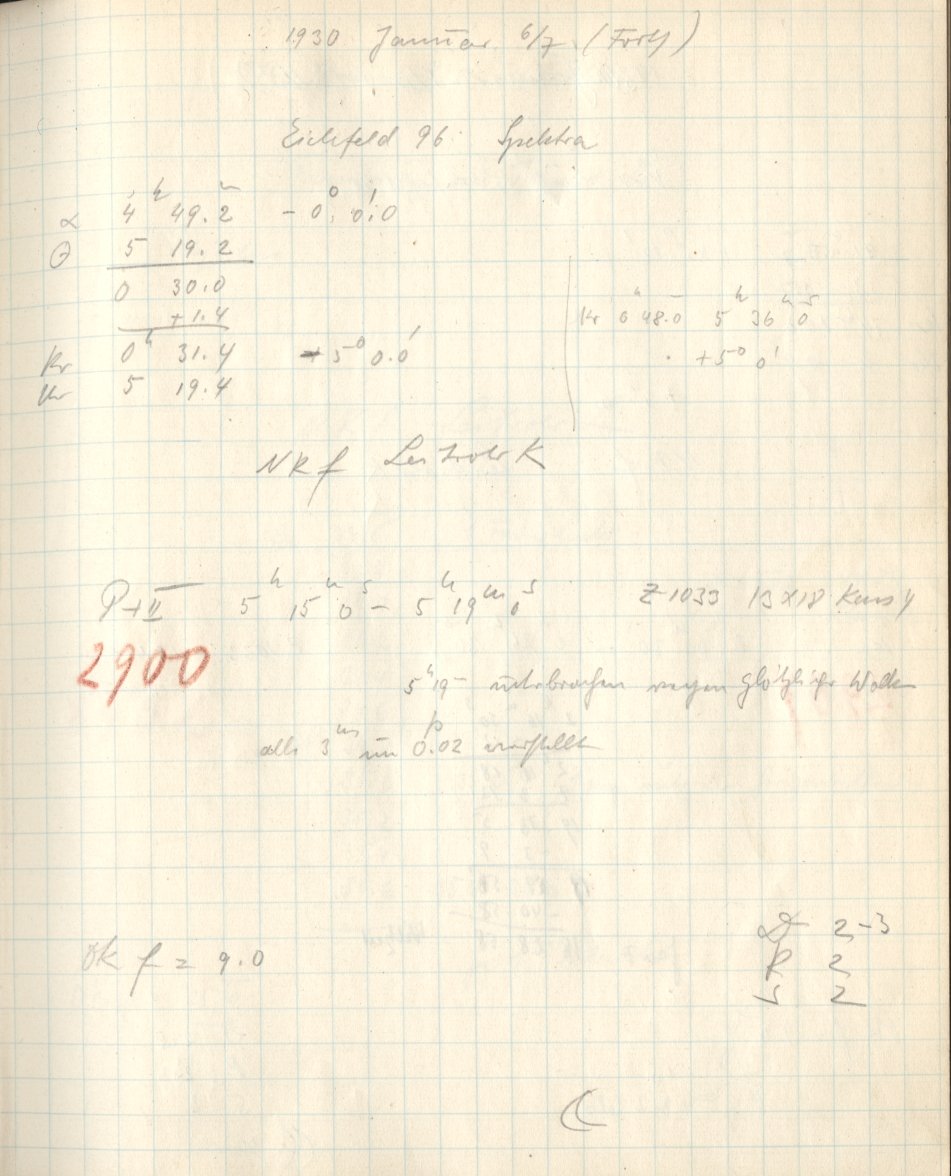 1930 Januar 6/7 (Forts)
Eichfeld 96 Spektra
α 4h 49.2m - 0° 0!0
Θ 5 19.2
0 30.0
+1.4
Kr 0h 31.4 +5° 0.0'
Ur 5 19.4
Kr 6h 48.0m 5h 36m 0s
+5° 0'
NRf Leitrohr K
P+II 5h 15m 0s - 5h 19m 0s Z 1033 13x18
2900
5h 19m unterbrochen wegen plötzlicher Wolken
alle 3m um 0.02 verstellt
OK f = 9.0
D 2-3
R 2
S 2